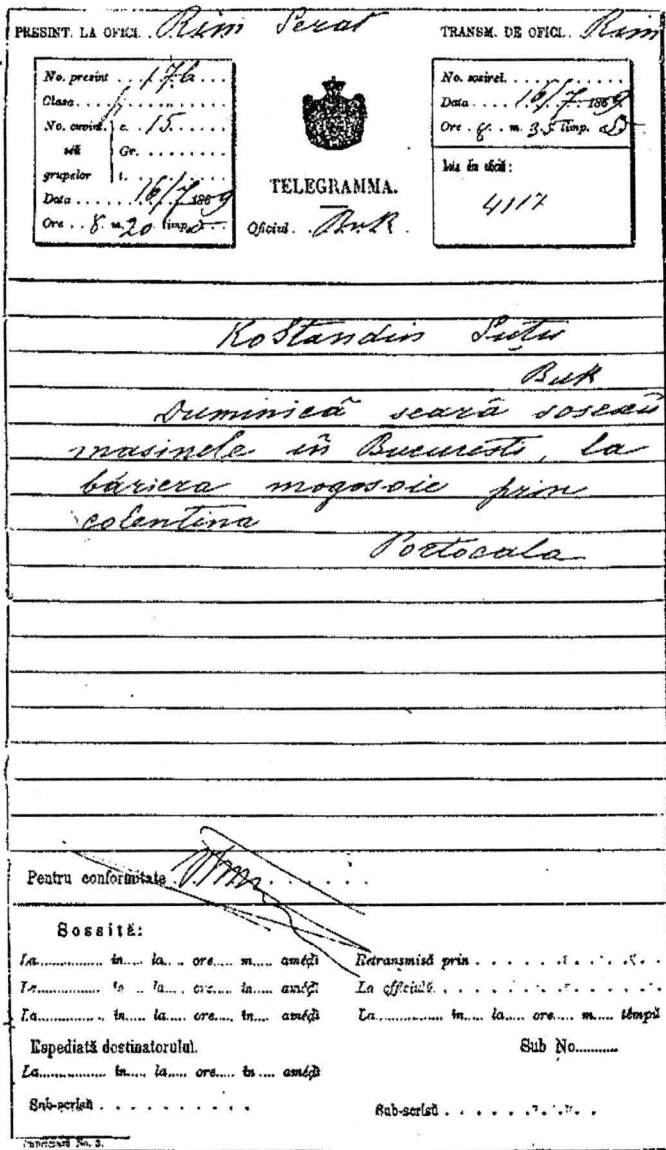 PRESINT. LA OFICI. . Rim Serat
TRANSM. DE OFICI. . Rim
No. presint . . . 176 . . .
Clasa . . . . . . .
No. cuvint. c. . 15. . . .
séŭ Gr. . . . . . . .
grupelor t. . . . . . . .
Data . . . . 16/7 1869
Ore . . 8. m. 20 timp.
TELEGRAMMA.
Oficiul . . Buk .
No. sosirei. . . . . . .
Data . . . . 16/7 1869
Ore . 8. m. 35 timp.
4117
Kostandin Suțu
Buk
Duminică seară sosescŭ
masinele in Bucuresti, la
băriera mogosoie prin
colentina
Portocala
Pentru conformitate . . . . . .
Sossită:
La............ in..... la..... ore..... m..... améḑi
La............ in..... la..... ore..... in..... améḑi
La............ in..... la..... ore..... in..... améḑi
Espediată destinatorului.
La............ in..... la..... ore..... in..... améḑi
Sub-scrisŭ . . . . . . . . . .
Retransmisă prin . . . . . . . .
La officiulŭ. . . . . . . . . .
La............ in..... la..... ore..... m..... timpŭ
Sub No...........
Sub-scrisŭ . . . . . . . . .
Imprimată No. 3.